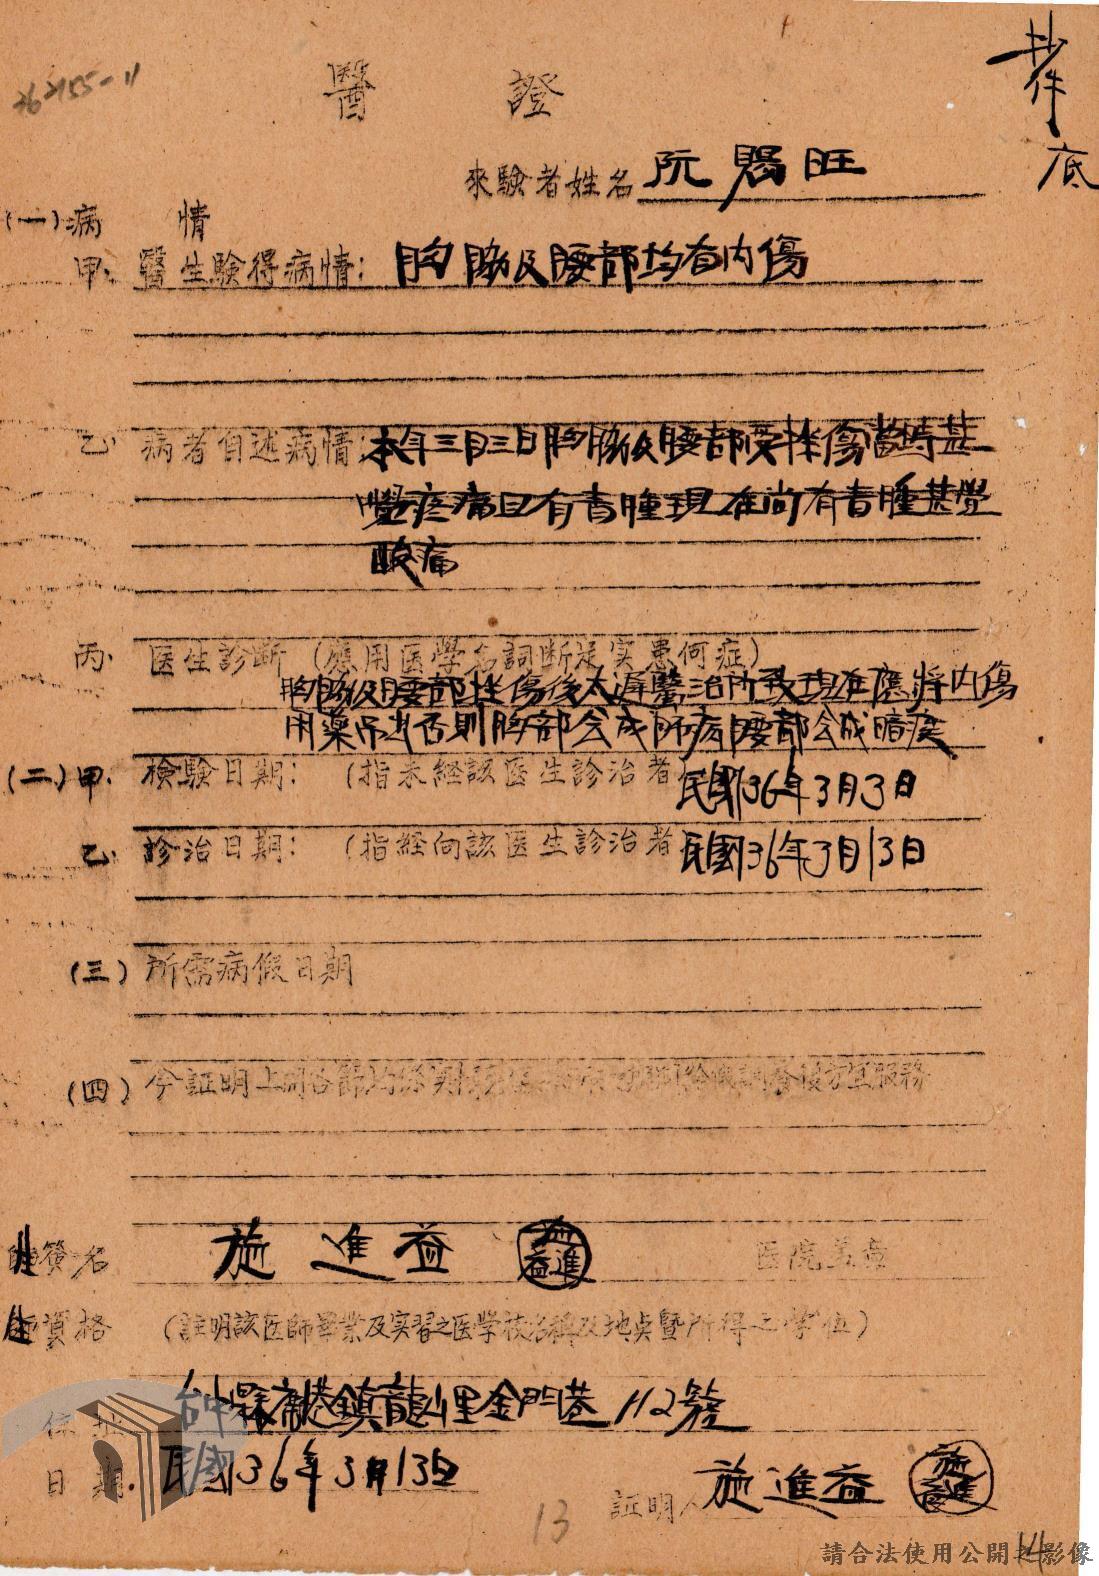 抄件
底
醫 證
來驗者姓名 阮賜旺
(一)病 情
甲、醫生驗得病情：胸脇及腰部均有內傷
乙、病者自述病情：本年三月三日胸脇及腰部受挫傷當時甚
覺疼痛且有青腫現在尚有青腫甚覺
酸痛
丙、医生診断（應用医学名詞断定实患何症）
胸脇及腰部挫傷後太遲醫治所致現在應將內傷
用藥吊出否則胸部会成肺病腰部会成暗疾
(二)甲、檢驗日期：（指未経該医生診治者 民國36年3月3日
乙、診治日期：（指経向該医生診治者 民國36年3月13日
(三)所需病假日期
(四)今証明上開各節均係実
師簽名 施進益 施進益 医院蓋章
師資格 （註明該医師畢業及实習之医学校名稱及地点暨所得之学位）
住址 台中縣鹿港鎮龍山里金門巷112號
日期 民國36年3月13日
証明人 施進益
13
14
請合法使用公開之影像